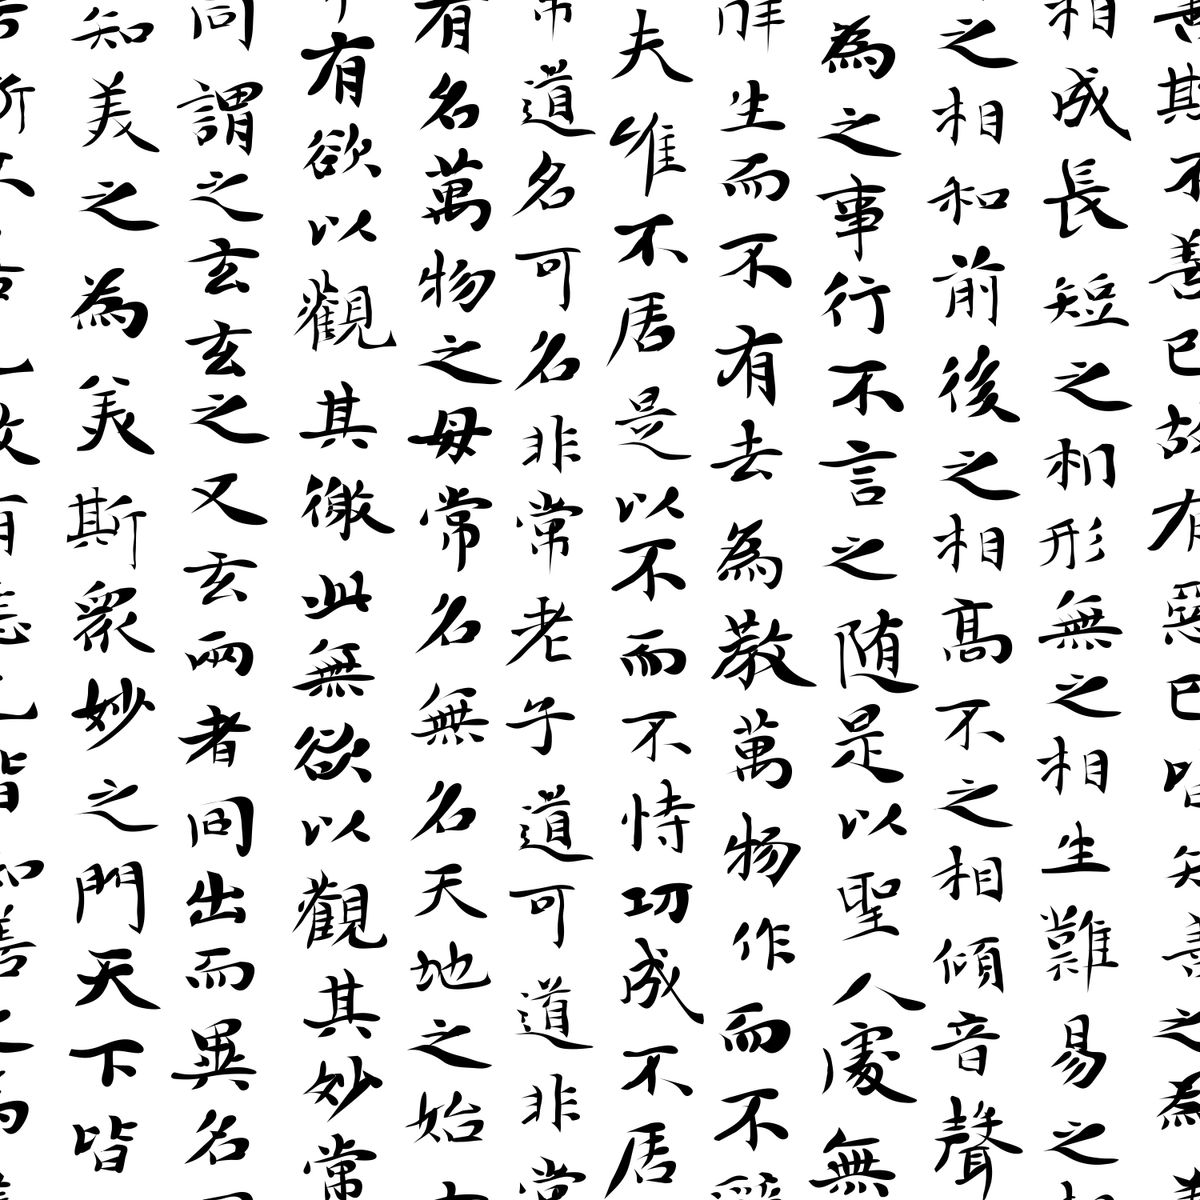 斯不善已故有惡已皆知善之為
相成長短之相形無之相生難易之
之相和前後之相高不之相傾音聲
為之事行不言之随是以聖人處無
生而不有去為教萬物作而不
夫唯不居是以不而不恃功成不居
常道名可名非常老子道可道非常
有名萬物之母常名無名天地之始
有欲以觀其徼此無欲以觀其妙常
同謂之玄玄之又玄兩者同出而異名
知美之為美斯衆妙之門天下皆